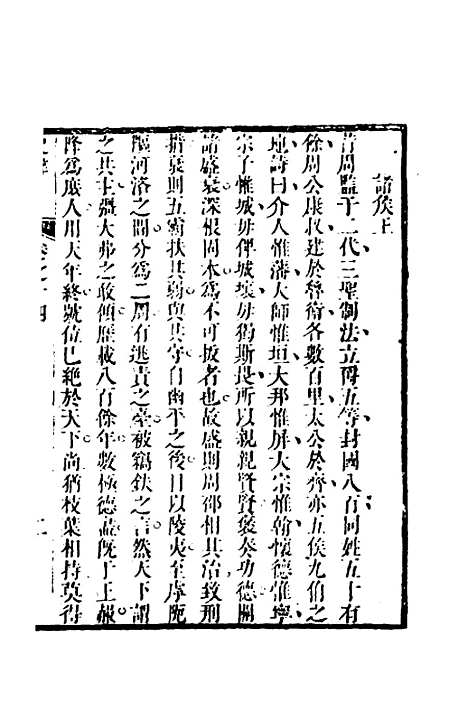 諸侯王
昔周監于二代三聖制法立爵五等封國八百同姓五十有
餘周公康叔建於魯衛各數百里太公於齊亦五侯九伯之
地詩曰介人惟藩大師惟垣大邦惟屏大宗惟翰懷德惟寧
宗子惟城毋俾城壞毋獨斯畏所以親親賢賢褒表功德關
諸盛衰深根固本爲不可拔者也故盛則周邵相其治致刑
措衰則五霸扶其弱與其守自幽平之後日以陵夷至虖阸
𨄅河洛之間分爲二周有逃責之臺被竊鈇之言然天下謂
之共主彊大弗之敢傾歷載八百餘年數極德盡旣于王赧
降爲庶人用天年終號位已絕於天下尚猶枝葉相持莫得
卷之十四
二